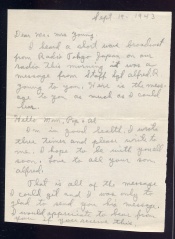 Sept 19, 1943
Dear Mr. & Mrs. Young
I heard a short wave broadcast
from Radio Tokyo Japan on our
radio this morning it was a
message from Staff Sgt Alfred R
going to you. Here is the mess-
age to you as much as I could
hear.
Hello Mom, Pop & al
I'm in good health. I wrote
other times and please write to
me. I hope to be with you all
soon. Love to all your son
Alfred.
That is all of the message
I could get and I was only to
glad to send you his message.
I would appreciate to hear from
you if you receive this.